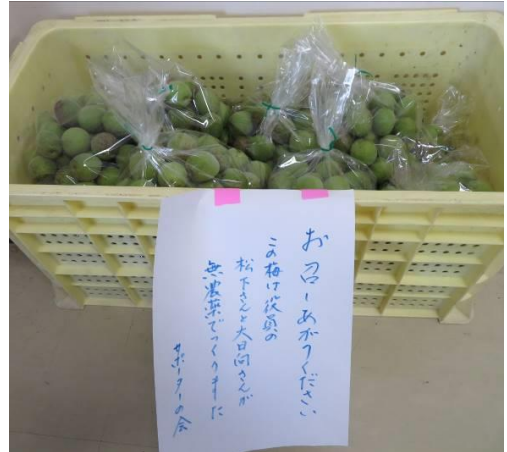 お召しあがりください
この梅は役員の
松下さんと大日向さんが
無農薬でつくりました
サポーターの会